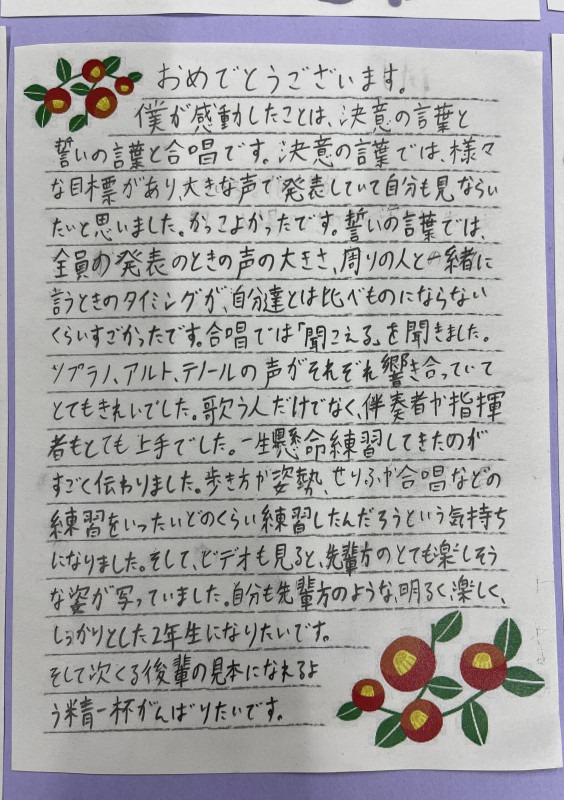 おめでとうございます。
僕が感動したことは、決意の言葉と
誓いの言葉と合唱です。決意の言葉では、様々
な目標があり、大きな声で発表していて自分も見ならい
たいと思いました。かっこよかったです。誓いの言葉では、
全員の発表のときの声の大きさ、周りの人と一緒に
言うときのタイミングが、自分達とは比べものにならない
くらいすごかったです。合唱では「聞こえる」を聞きました。
ソプラノ、アルト、テノールの声がそれぞれ響き合っていて
とてもきれいでした。歌う人だけでなく、伴奏者や指揮
者もとても上手でした。一生懸命練習してきたのが
すごく伝わりました。歩き方や姿勢、せりふや合唱などの
練習をいったいどのくらい練習したんだろうという気持ち
になりました。そして、ビデオも見ると、先輩方のとても楽しそう
な姿が写っていました。自分も先輩方のような、明るく、楽しく、
しっかりとした2年生になりたいです。
そして次くる後輩の見本になれるよ
う精一杯がんばりたいです。